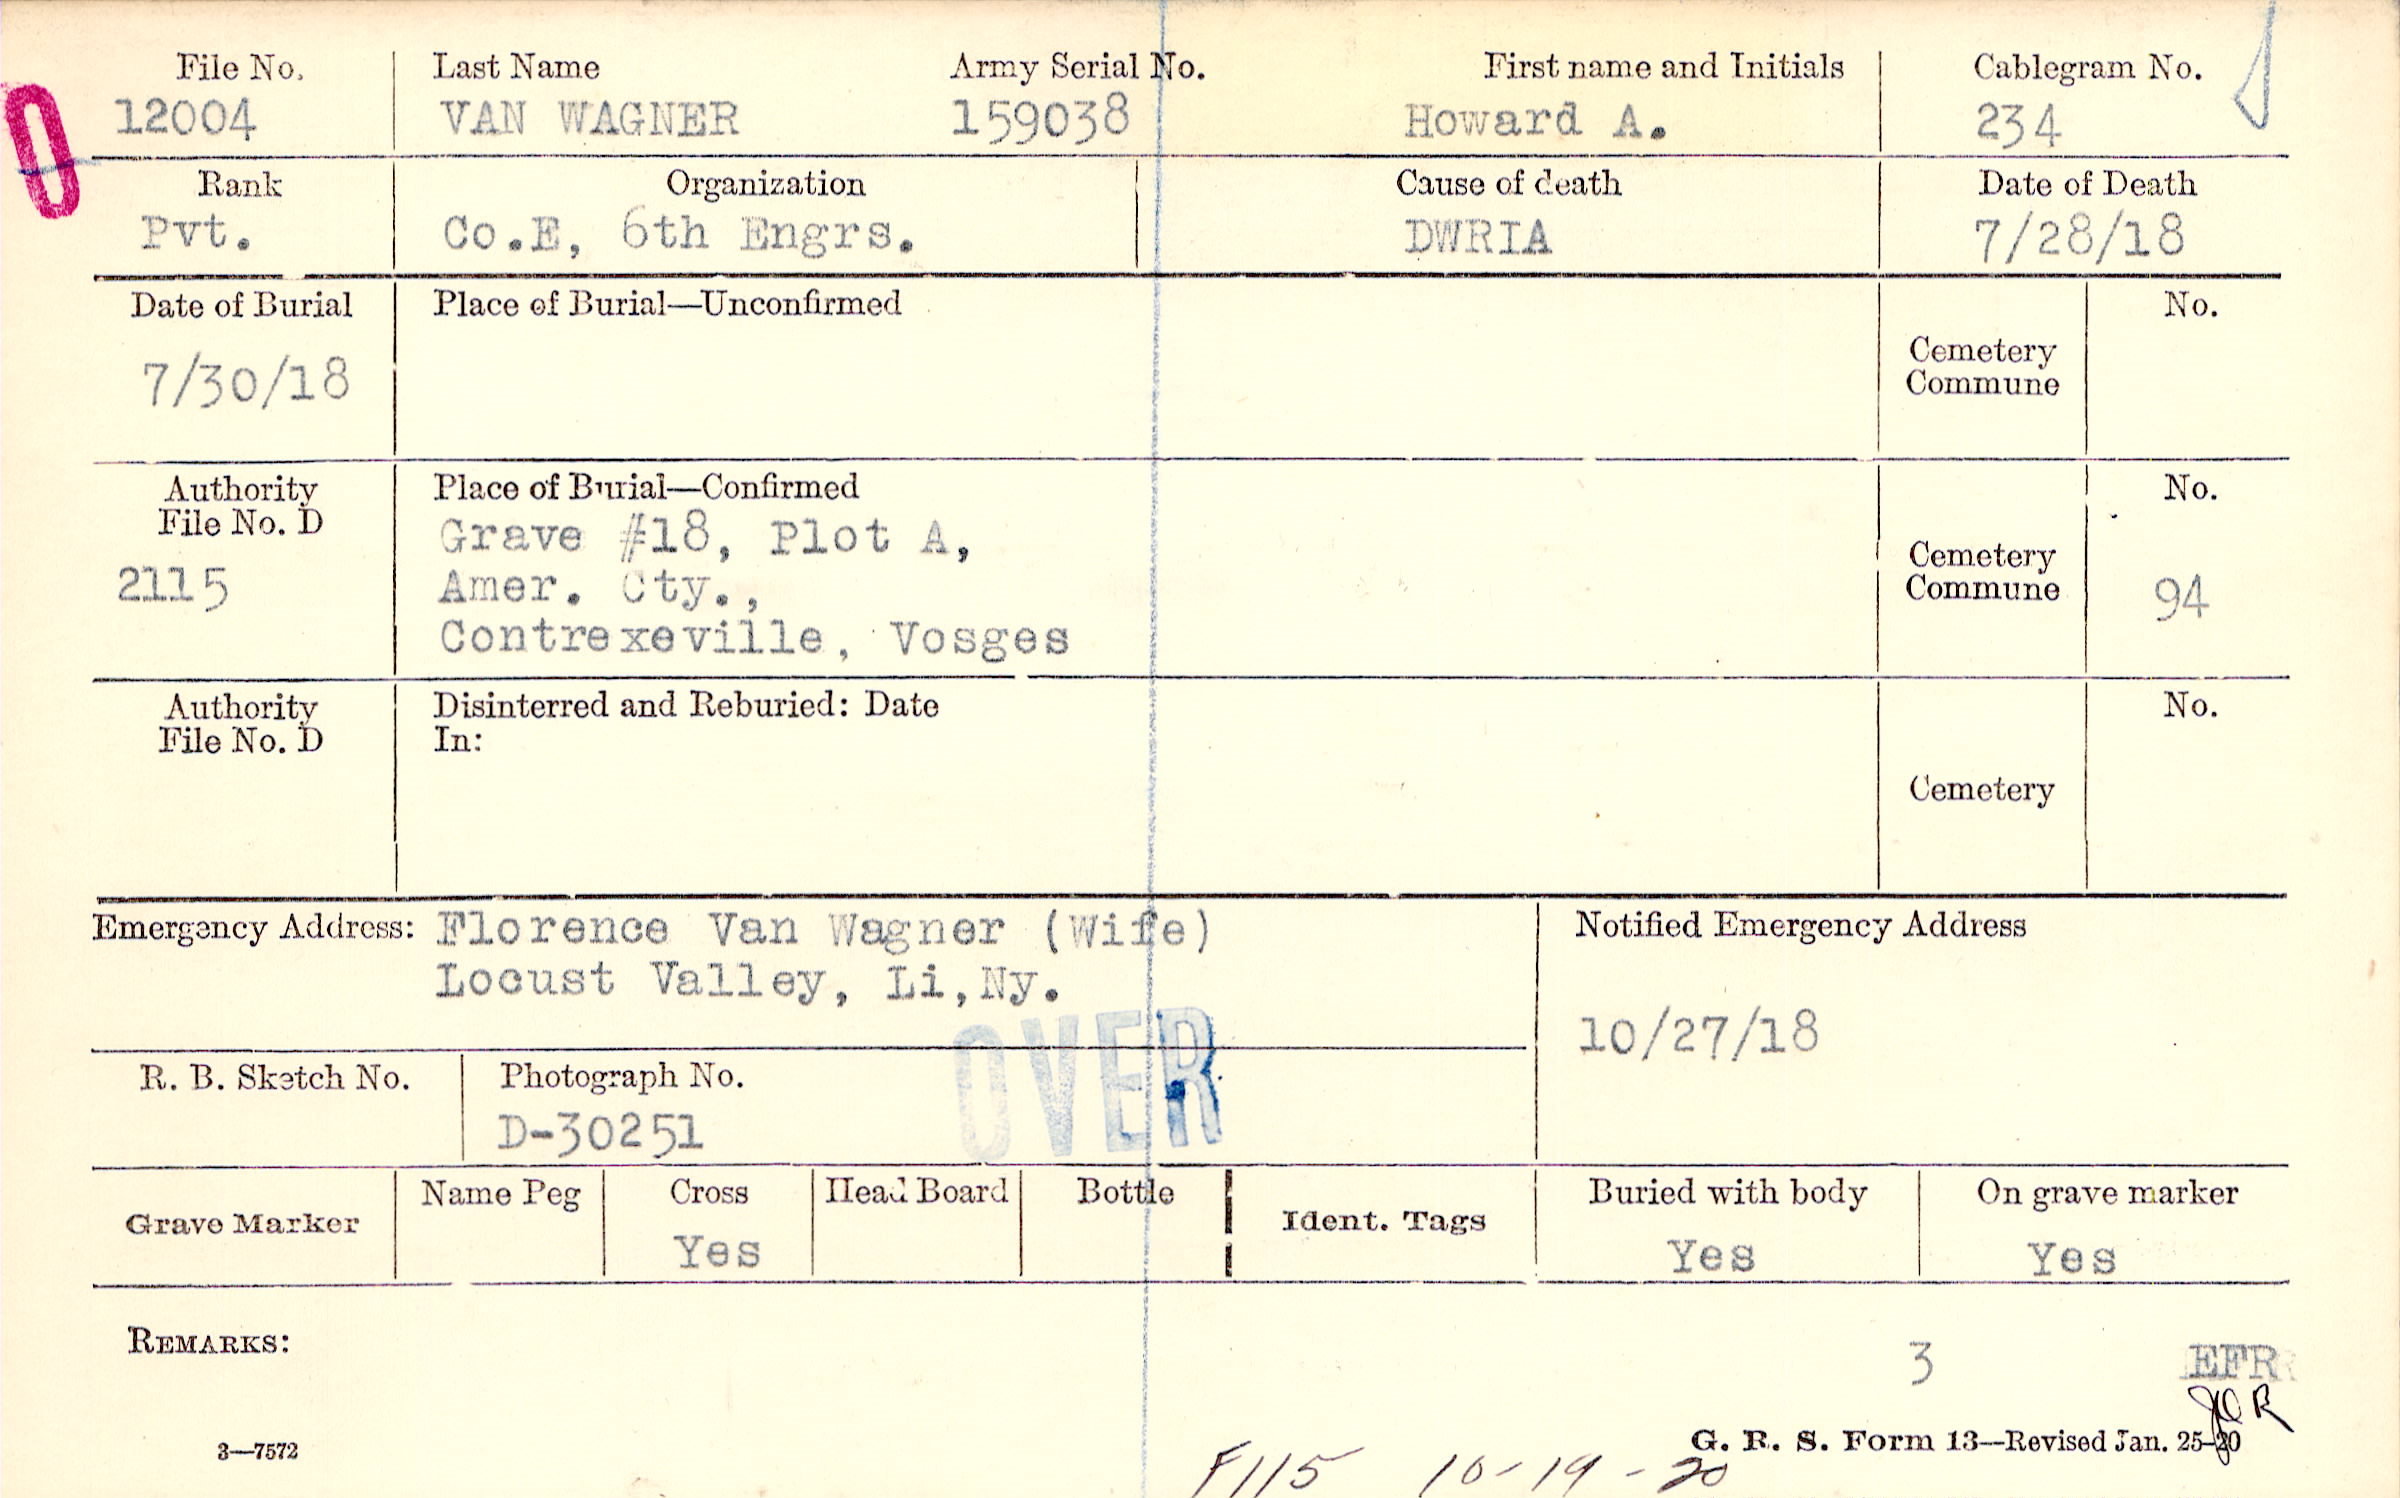 File No. Last Name Army Serial No. First name and Initials Cablegram No.
0 12004 VAN WAGNER 159038 Howard A. 234
Rank Organization Cause of death Date of Death
Pvt. Co.E, 6th Engrs. DWRIA 7/28/18
Date of Burial Place of Burial—Unconfirmed No.
7/30/18 Cemetery
Commune
Authority Place of Burial—Confirmed No.
File No. D
Grave #18, Plot A,
2115 Amer. Cty., Cemetery
Commune 94
Contrexeville, Vosges
Authority Disinterred and Reburied: Date No.
File No. D In:
Cemetery
Emergency Address: Florence Van Wagner (Wife) Notified Emergency Address
Locust Valley, Li,Ny.
10/27/18
OVER
R. B. Sketch No. Photograph No.
D-30251
Grave Marker Name Peg Cross Head Board Bottle Ident. Tags Buried with body On grave marker
Yes Yes Yes
REMARKS:
3 EFR
JOR
3—7572 G. R. S. Form 13—Revised Jan. 25-20
F115 10-19-20